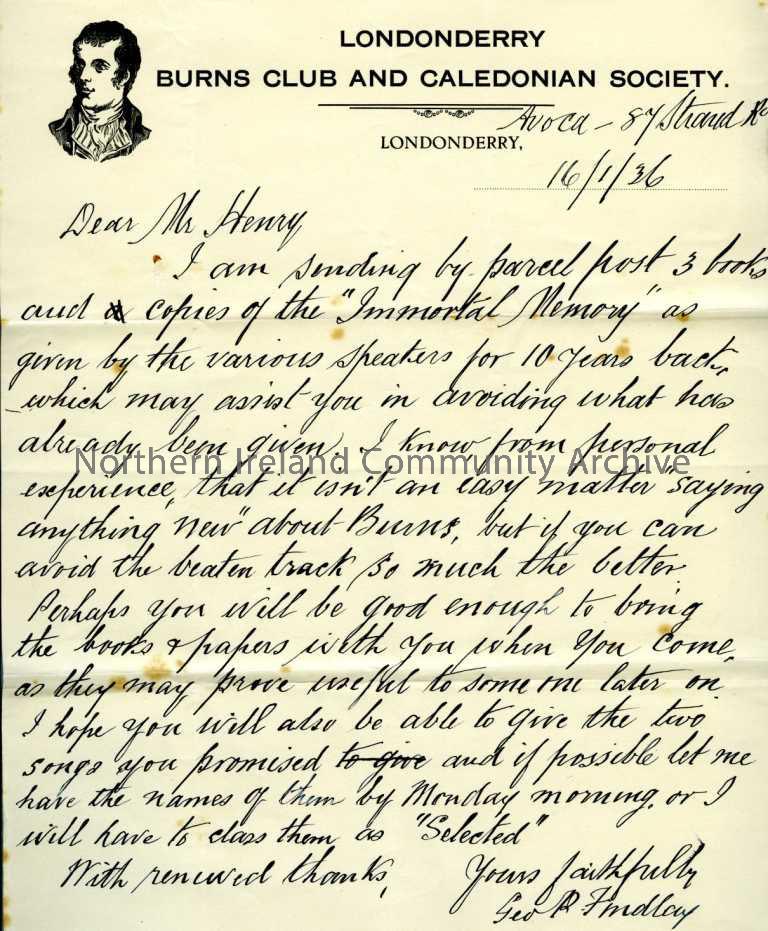 LONDONDERRY
BURNS CLUB AND CALEDONIAN SOCIETY.
Avoca - 87 Strand Rd
LONDONDERRY,
16/1/36
Dear Mr Henry,
I am sending by parcel post 3 books
and copies of the "Immortal Memory" as
given by the various speakers for 10 years back,
which may assist you in avoiding what has
already been given. I know from personal
Northern Ireland Community Archive
experience, that it isn't an easy matter saying
anything "new" about Burns, but if you can
avoid the beaten track so much the better.
Perhaps you will be good enough to bring
the books & papers with you when you come,
as they may prove useful to some one later on.
I hope you will also be able to give the two
songs you promised to give and if possible let me
have the names of them by Monday morning, or I
will have to class them as "Selected"
With renewed thanks,
Yours faithfully
Geo R. Findlay